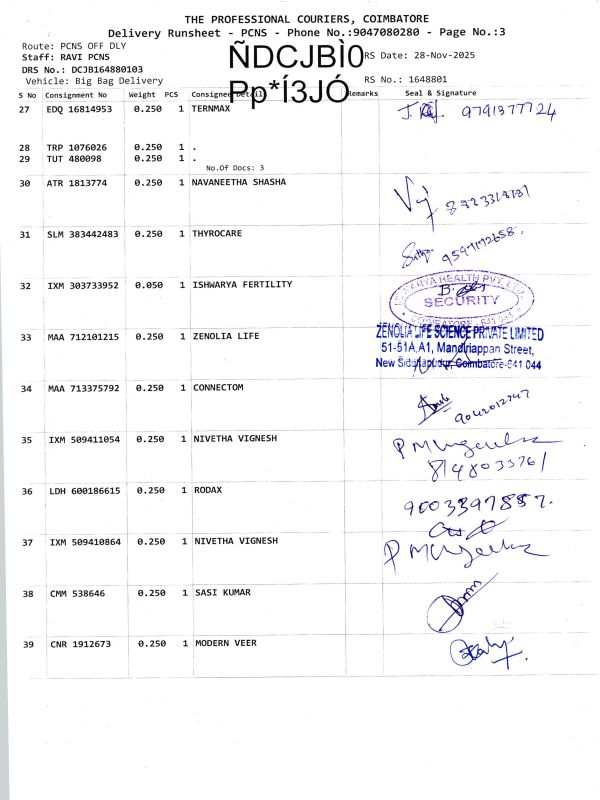 THE PROFESSIONAL COURIERS, COIMBATORE
Delivery Runsheet - PCNS - Phone No.:9047080280 - Page No.:3
Route: PCNS OFF DLY
Staff: RAVI PCNS
DRS No.: DCJB164880103
Vehicle: Big Bag Delivery
ÑDCJBÌ0
Pp*Í3JÓ
RS Date: 28-Nov-2025
RS No.: 1648801
S No Consignment No Weight PCS Consignee Detail Remarks Seal & Signature
27 EDQ 16814953 0.250 1 TERNMAX 9791377724
28 TRP 1076026 0.250 1 .
29 TUT 480098 0.250 1 .
No.Of Docs: 3
30 ATR 1813774 0.250 1 NAVANEETHA SHASHA
31 SLM 383442483 0.250 1 THYROCARE
32 IXM 303733952 0.050 1 ISHWARYA FERTILITY
HEALTH PVT. LTD.
SECURITY
33 MAA 712101215 0.250 1 ZENOLIA LIFE
ZENOLIA LIFE SCIENCE PRIVATE LIMITED
51-51A,A1, Mandriappan Street,
New Siddhapudur, Coimbatore-641 044
34 MAA 713375792 0.250 1 CONNECTOM
35 IXM 509411054 0.250 1 NIVETHA VIGNESH
8148033761
36 LDH 600186615 0.250 1 RODAX
37 IXM 509410864 0.250 1 NIVETHA VIGNESH
38 CMM 538646 0.250 1 SASI KUMAR
39 CNR 1912673 0.250 1 MODERN VEER